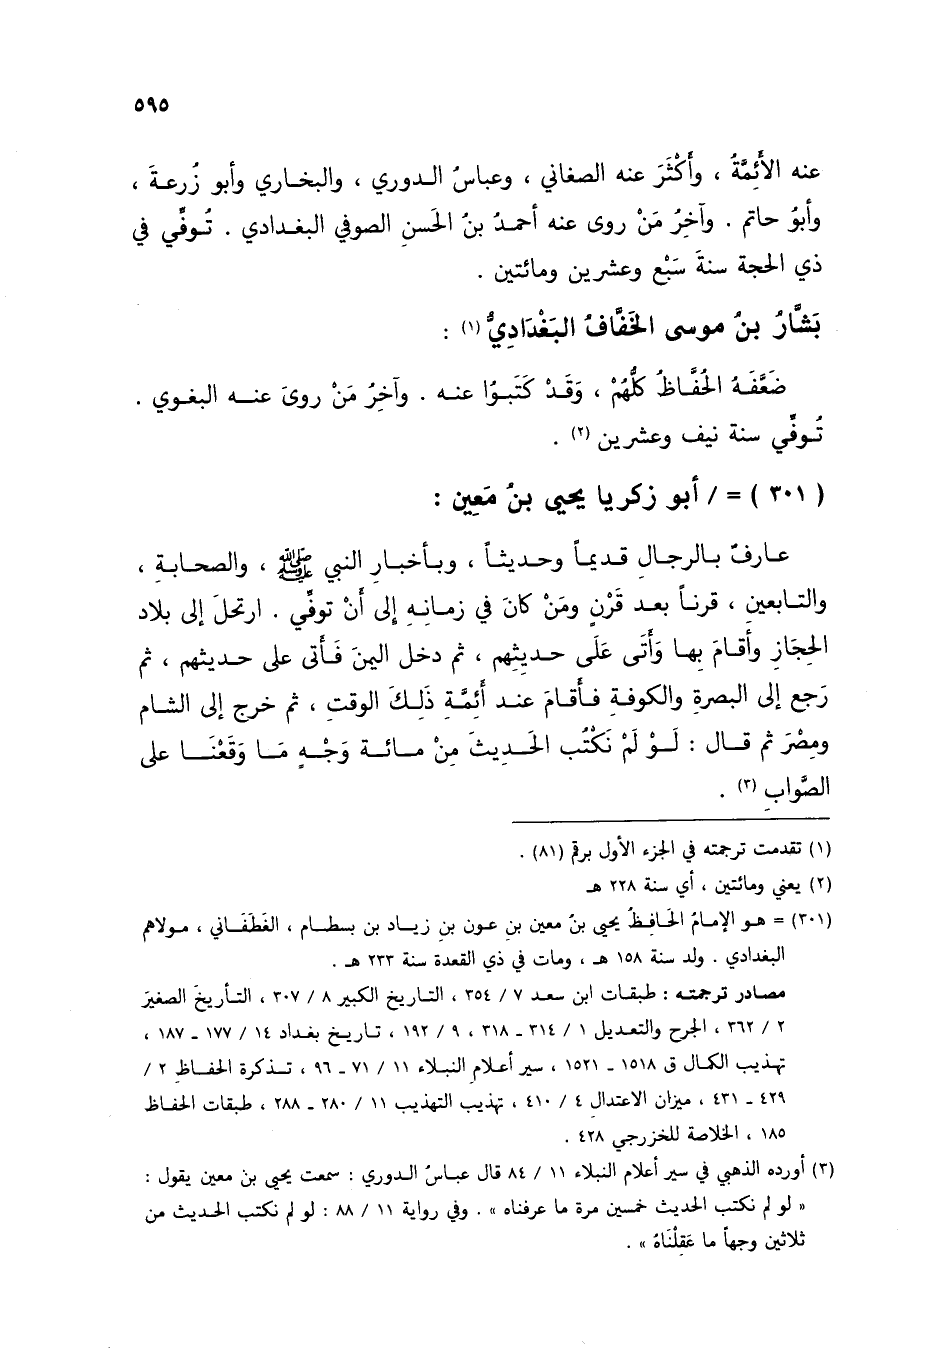 ٥٩٥
عنه الأَئِمَّةُ ، وأَكْثَرَ عنه الصغاني ، وعباسُ الـدوري ، والبخـاري وأبو زُرعـةَ ،
وأبوُ حاتم . وآخِرُ مَنْ روى عنه أحمـدُ بنُ الحَسنِ الصوفي البغـدادي . تُـوفِّي في
ذي الحجة سنةَ سَبْعٍ وعشرين ومائتين .
بَشَّارُ بنُ موسى الخَفَّافُ البَغْدَادِيُّ (١) :
ضَعَّفَـهُ الحُفَّـاظُ كلُّهُمْ ، وَقَـدْ كَتَبـوُا عنـه . وآخِرُ مَنْ روىَ عنــه البغـوي .
تُـوفِّي سنة نيف وعشرين (٢) .
( ٣٠١ ) = / أبو زكريا يحيى بنُ مَعِين :
عـارفٌ بـالرجـالِ قـديمـاً وحـديثـاً ، وبـأخبـارِ النبي ﷺ ، والصحـابـةِ ،
والتـابعينِ ، قرنـاً بعـد قَرْنٍ ومَنْ كانَ في زمـانـهِ إلى أَنْ توفِّي . ارتحلَ إلى بلاد
الحِجَازِ وأقـامَ بهـا وَأَتَى عَلَى حـديثهِم ، ثم دخل اليمنَ فَـأتى على حـديثهم ، ثم
رَجع إلى البصرةِ والكوفـةِ فـأقـامَ عنـد أَئِمَّـة ذَلـكَ الوقتِ ، ثم خرج إلى الشـام
ومِصْرَ ثم قـال : لَـوْ لَمْ نَكْتُب الحَـديثَ مِنْ مـائـة وَجْـهٍ مَـا وَقَعْنَـا على
الصَّوابِ (٣) .
(١) تقدمت ترجمته في الجزء الأول برقم (٨١) .
(٢) يعني ومائتين ، أي سنة ٢٢٨ هـ
(٣٠١) = هـو الإمـامُ الحَـافِـظُ يحيى بنُ معين بنِ عـون بنِ زيـاد بن بسطـام ، الغَطَفَـاني ، مـولاهم
البغدادي . ولد سنة ١٥٨ هـ ، ومات في ذي القعدة سنة ٢٣٣ هـ .
مصادر ترجمتـه : طبقات ابن سعد ٧ / ٣٥٤ ، التـاريخ الكبير ٨ / ٣٠٧ ، التـأريخَ الصغيرَ
٢ / ٣٦٢ ، الجرح والتعديل ١ / ٣١٤ ـ ٣١٨ ، ٩ / ١٩٢ ، تـاريـخ بغـداد ١٤ / ١٧٧ ـ ١٨٧ ،
تهـذيب الكمال ق ١٥١٨ ـ ١٥٢١ ، سير أعـلام النبـلاء ١١ / ٧١ ـ ٩٦ ، تـذكرة الحفـاظ ٢ /
٤٢٩ ـ ٤٣١ ، ميزان الاعتدال ٤ / ٤١٠ ، تهذيب التهذيب ١١ / ٢٨٠ ـ ٢٨٨ ، طبقات الحفاظ
١٨٥ ، الخلاصة للخزرجي ٤٢٨ .
(٣) أورده الذهبي في سير أعلام النبلاء ١١ / ٨٤ قال عباسُ الـدوري : سمعت يحيى بن معين يقول :
« لو لم نكتب الحديث خمسين مرة ما عرفناه » . وفي رواية ١١ / ٨٨ : لو لم نكتب الحـديث من
ثلاثين وجهاً ما عَقِلْنَاهُ » .